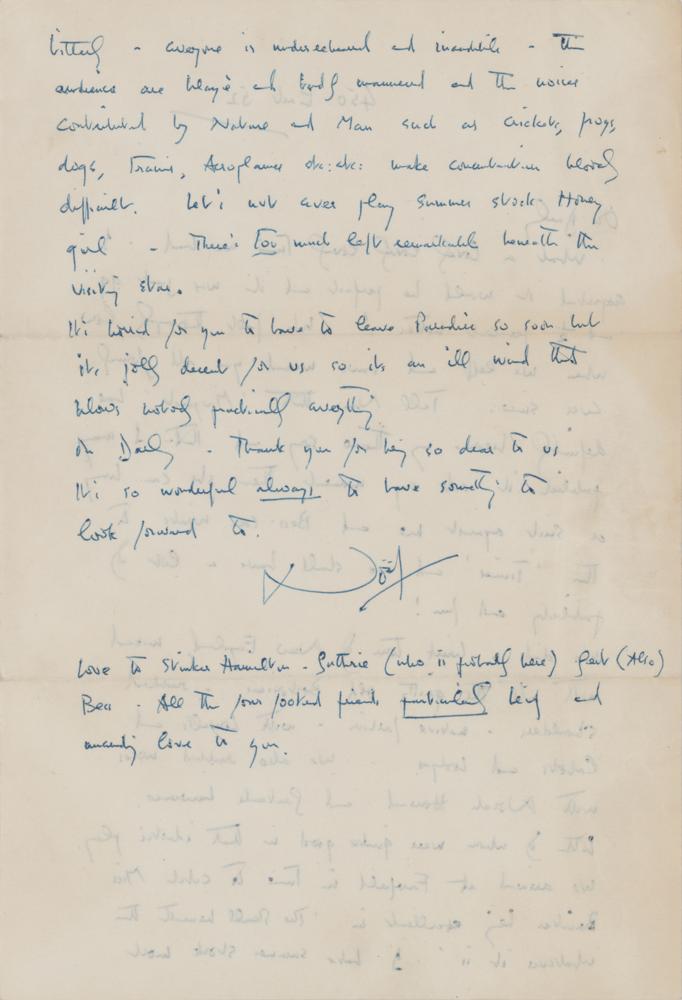 bitterly - everyone is underrehearsed and inaudible - the
audiences are blasé and badly mannered and the noises
contributed by Nature and Man such as crickets, frogs,
dogs, Trains, Aeroplanes etc: etc: make concentration bloody
difficult. Let's not ever play summer stock Honey
girl - There's Too much left remarkable beneath the
visiting star.
It's horrid for you to have to leave Paradise so soon but
it's jolly decent for us so its an ill wind that
blows nobody practically everything
Oh Darling - Thank you for being so dear to us
It's so wonderful always to have something to
look forward to.
Love to Stinker Hamilton - Guthrie (who is probably here) Gert (Also)
Bea - All the four footed friends particularly and
unendingly love to you.